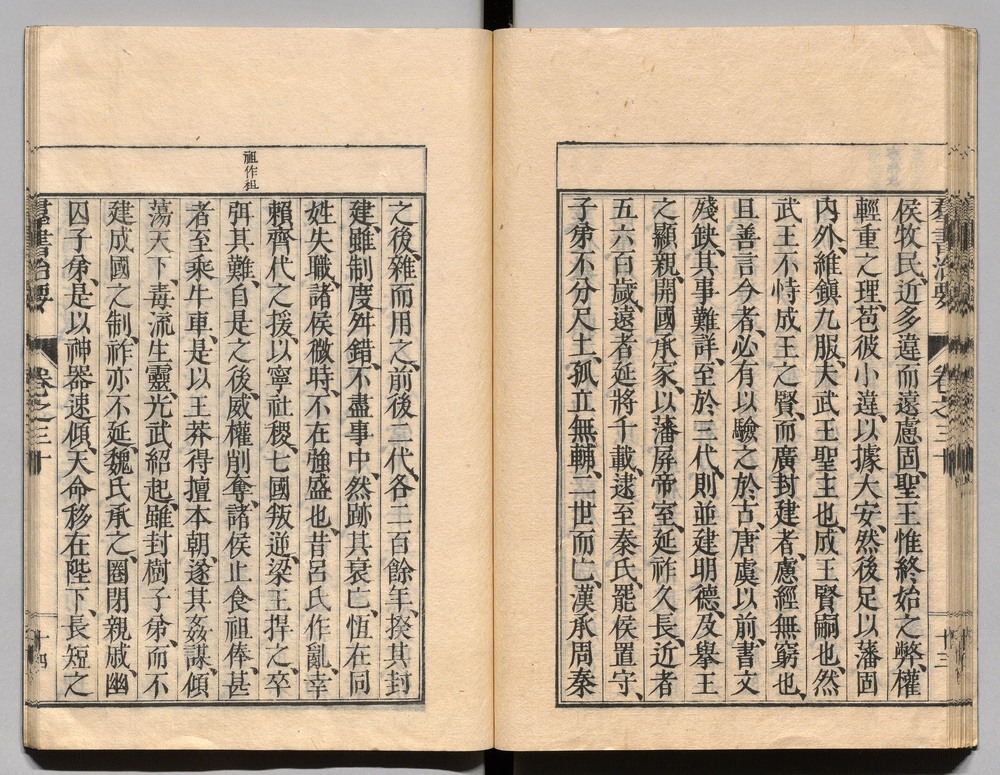 侯牧民、近多違而遠慮固、聖王惟終始之弊、權
輕重之理、苞彼小違、以據大安、然後足以藩固
內外、維鎭九服、夫武王聖主也、成王賢嗣也、然
武王不恃成王之賢、而廣封建者、慮經無窮也、
且善言今者、必有以驗之於古、唐虞以前、書文
殘缺、其事難詳、至於三代、則並建明德、及擧王
之顯親、開國承家、以藩屏帝室、延祚久長、近者
五六百歲、遠者延將千載、逮至秦氏、罷侯置守、
子弟不分尺土、孤立無輔、二世而亡、漢承周秦
羣書治要
卷之三十
十三
之後、雜而用之、前後二代、各二百餘年、揆其封
建、雖制度舛錯、不盡事中、然跡其衰亡、恆在同
姓失職、諸侯微時、不在強盛也、昔呂氏作亂、幸
賴齊代之援、以寧社稷、七國叛逆、梁王捍之、卒
弭其難、自是之後、威權削奪、諸侯止食祖俸、甚
祖作租
者至乘牛車、是以王莽得擅本朝、遂其姦謀、傾
蕩天下、毒流生靈、光武紹起、雖封樹子弟、而不
建成國之制、祚亦不延、魏氏承之、圈閉親戚、幽
囚子弟、是以神器速傾、天命移在陛下、長短之
羣書治要
卷之三十
十四